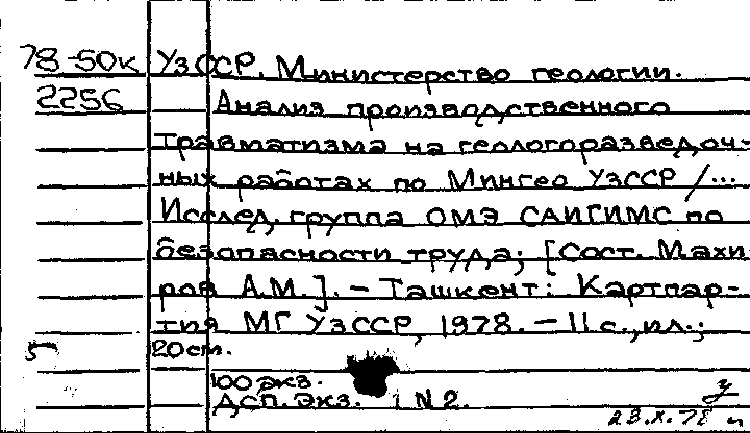 78-50к УзССР. Министерство геологии.
2256 Анализ производственного
травматизма на геологоразведоч-
ных работах по Мингео УзССР /...
Исслед. группа ОМЭ САИГИМС по
безопасности труда; [Сост. Махи-
ров А.М.]. - Ташкент: Картпар-
тия МГ УзССР, 1978. - 11 с., ил.;
5 20 см.
100 экз.
ДСП. Экз. N 2.
23.X.78